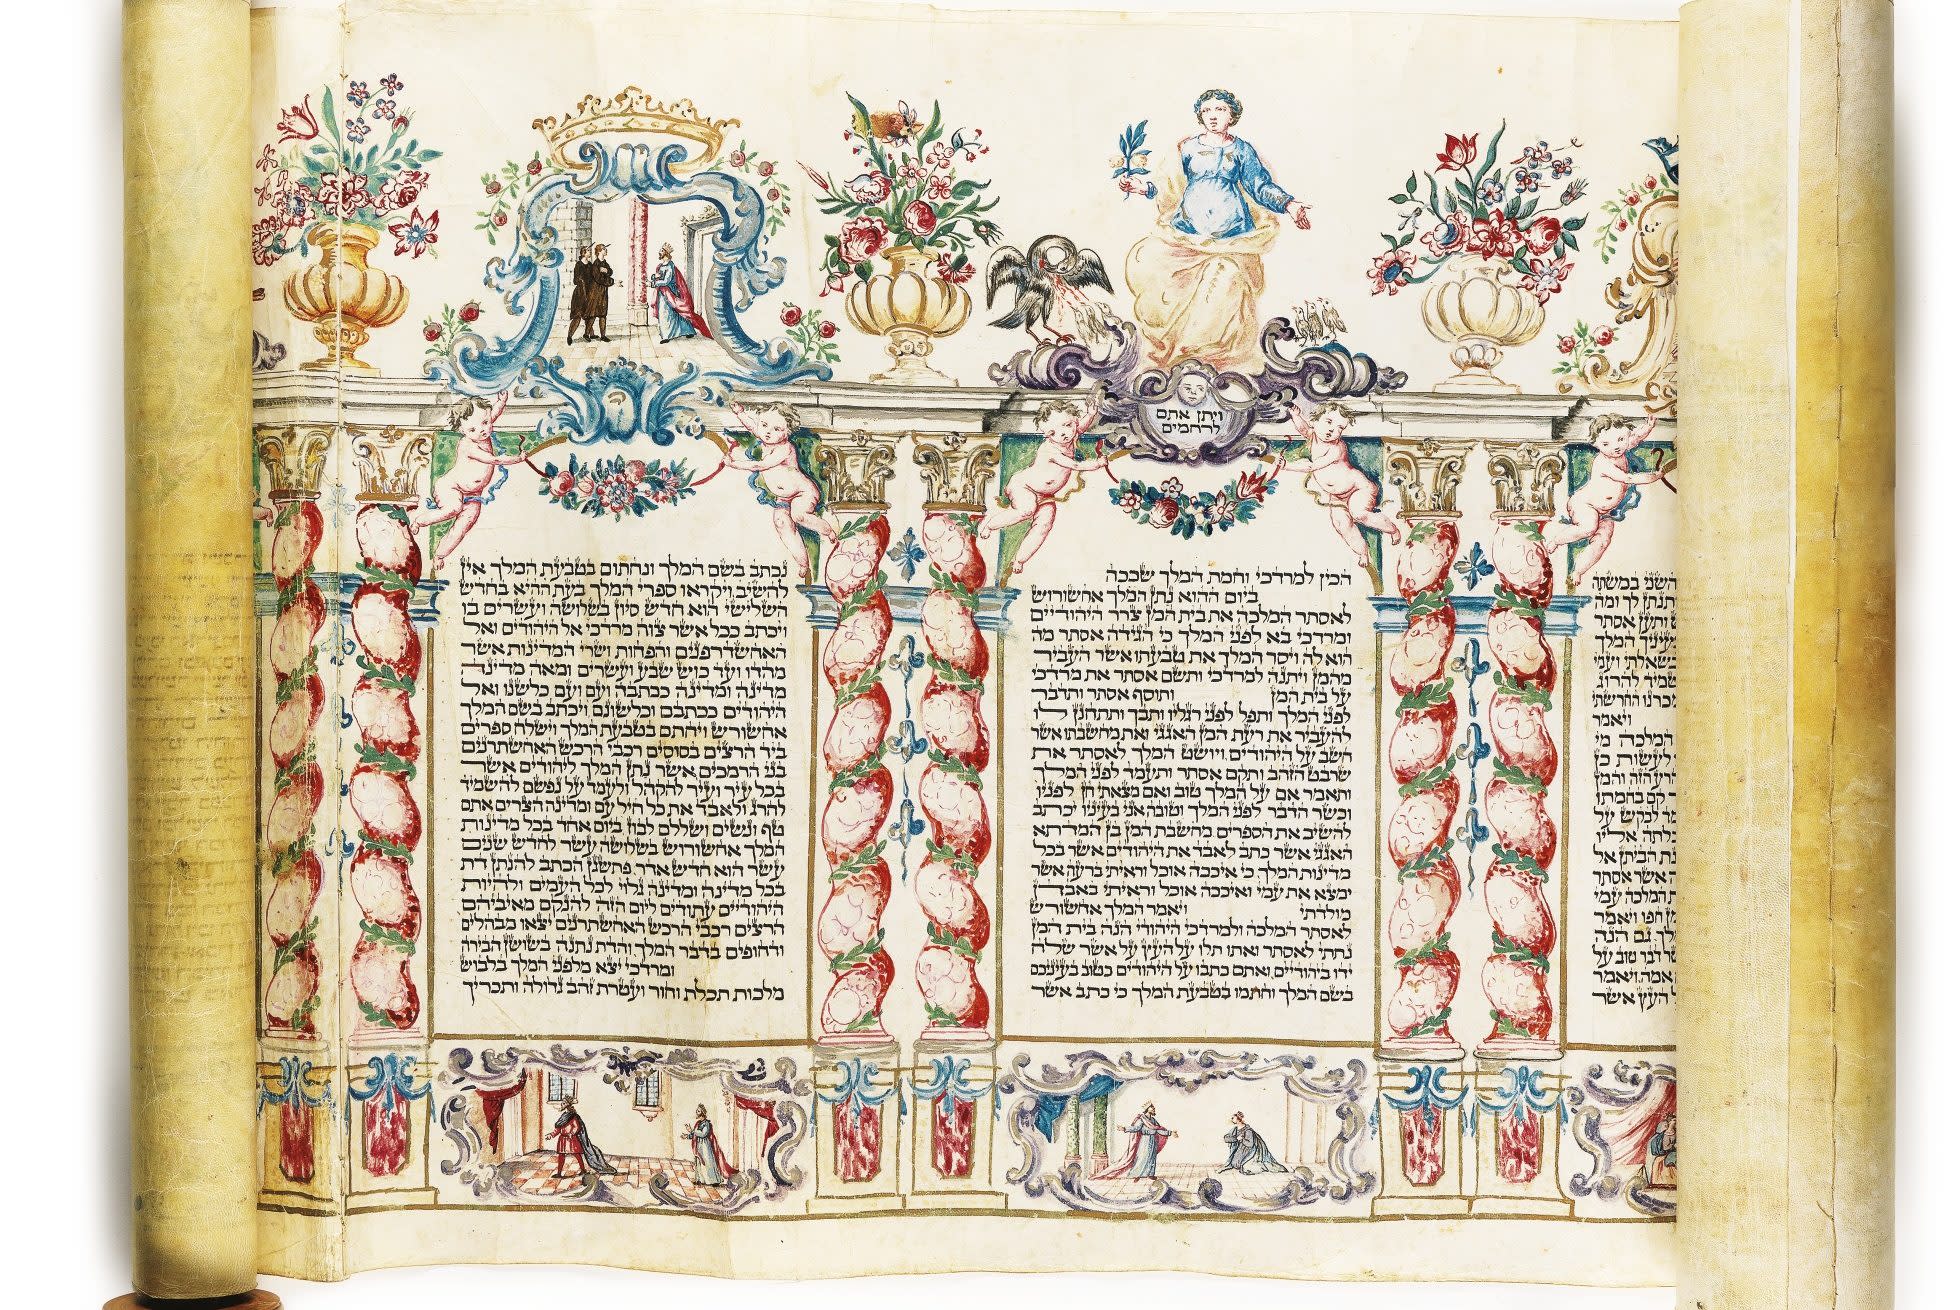 ויתן אתם
לרחמים
השני במשתה
לך ומה
ותען אסתר
בעיניך המלך
בשאלתי ועמי
להרוג
החרשתי
ויאמר
המלכה מי
לעשות כן
הרע הזה והמן
קם בחמתו
לבקש על
אליו
הביתן אל
אשר אסתר
המלכה עמי
חפו ויאמר
גם הנה
דבר טוב על
אמה ויאמר
העץ אשר
הכין למרדכי וחמת המלך שככה
ביום ההוא נתן המלך אחשורוש
לאסתר המלכה את בית המן צרר היהודיים
ומרדכי בא לפני המלך כי הגידה אסתר מה
הוא לה ויסר המלך את טבעתו אשר העביר
מהמן ויתנה למרדכי ותשם אסתר את מרדכי
על בית המן ותוסף אסתר ותדבר
לפני המלך ותפל לפני רגליו ותבך ותתחנן לו
להעביר את רעת המן האגגי ואת מחשבתו אשר
חשב על היהודים ויושט המלך לאסתר את
שרבט הזהב ותקם אסתר ותעמד לפני המלך
ותאמר אם על המלך טוב ואם מצאתי חן לפניו
וכשר הדבר לפני המלך וטובה אני בעיניו יכתב
להשיב את הספרים מחשבת המן בן המדתא
האגגי אשר כתב לאבד את היהודים אשר בכל
מדינות המלך כי איככה אוכל וראיתי ברעה אשר
ימצא את עמי ואיככה אוכל וראיתי באבדן
מולדתי ויאמר המלך אחשורש
לאסתר המלכה ולמרדכי היהודי הנה בית המן
נתתי לאסתר ואתו תלו על העץ על אשר שלח
ידו ביהודיים ואתם כתבו על היהודים כטוב בעיניכם
בשם המלך וחתמו בטבעת המלך כי כתב אשר
נכתב בשם המלך ונחתום בטבעת המלך אין
להשיב ויקראו ספרי המלך בעת ההיא בחדש
השלישי הוא חדש סיון בשלושה ועשרים בו
ויכתב ככל אשר צוה מרדכי אל היהודים ואל
האחשדרפנים והפחות ושרי המדינות אשר
מהדו ועד כוש שבע ועשרים ומאה מדינה
מדינה ומדינה ככתבה ועם ועם כלשנו ואל
היהודים ככתבם וכלשונם ויכתב בשם המלך
אחשורש ויחתם בטבעת המלך וישלח ספרים
ביד הרצים בסוסים רכבי הרכש האחשתרנים
בני הרמכים אשר נתן המלך ליהודים אשר
בכל עיר ועיר להקהל ולעמד על נפשם להשמיד
להרג ולאבד את כל חיל עם ומדינה הצרים אתם
טף ונשים ושללם לבוז ביום אחד בכל מדינות
המלך אחשורוש בשלושה עשר לחדש שנים
עשר הוא חדש אדר פתשגן הכתב להנתן דת
בכל מדינה ומדינה גלוי לכל העמים ולהיות
היהודיים עתודים ליום הזה להנקם מאיביהם
הרצים רכבי הרכש האחשתרנים יצאו מבהלים
ודחופים בדבר המלך והדת נתנה בשושן הבירה
ומרדכי יצא מלפני המלך בלבוש
מלכות תכלת וחור ועטרת זהב גדולה ותכריך